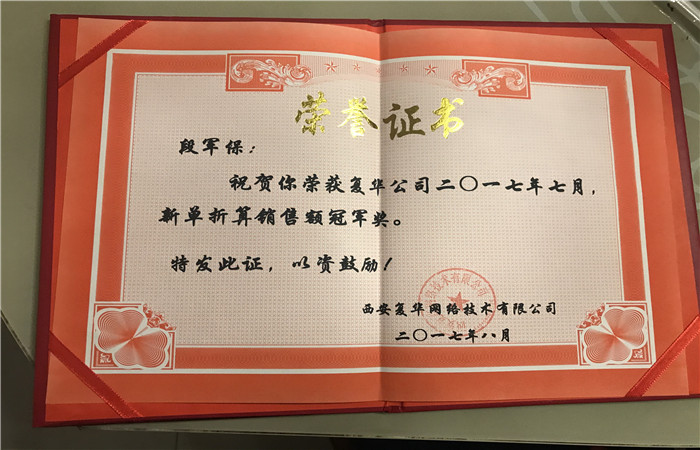 荣誉证书
段军保：
祝贺你荣获复华公司二〇一七年七月，
新单折算销售额冠军奖。
特发此证，以资鼓励！
西安复华网络技术有限公司
二〇一七年八月